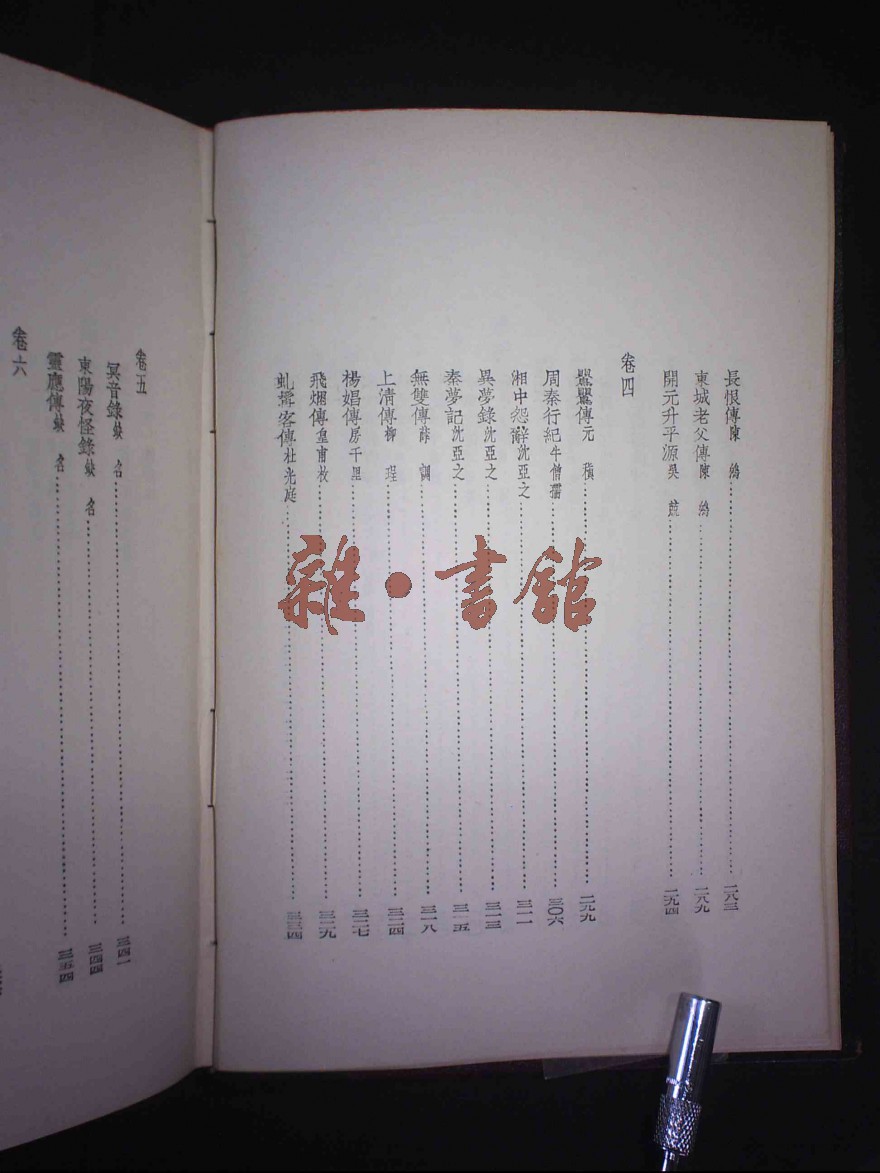 長恨傳陳鴻……二八三
東城老父傳陳鴻……二八九
開元升平源吳兢……二九四
卷四
鶯鶯傳元稹……二九九
周秦行紀牛僧孺……三〇六
湘中怨辭沈亞之……三一一
異夢錄沈亞之……三一三
秦夢記沈亞之……三一五
無雙傳薛調……三一八
上清傳柳珵……三二四
楊娼傳房千里……三二七
飛烟傳皇甫枚……三二九
虬髯客傳杜光庭……三三四
卷五
冥音錄缺名……三四一
東陽夜怪錄缺名……三四四
靈應傳缺名……三五四
卷六
雜·書館